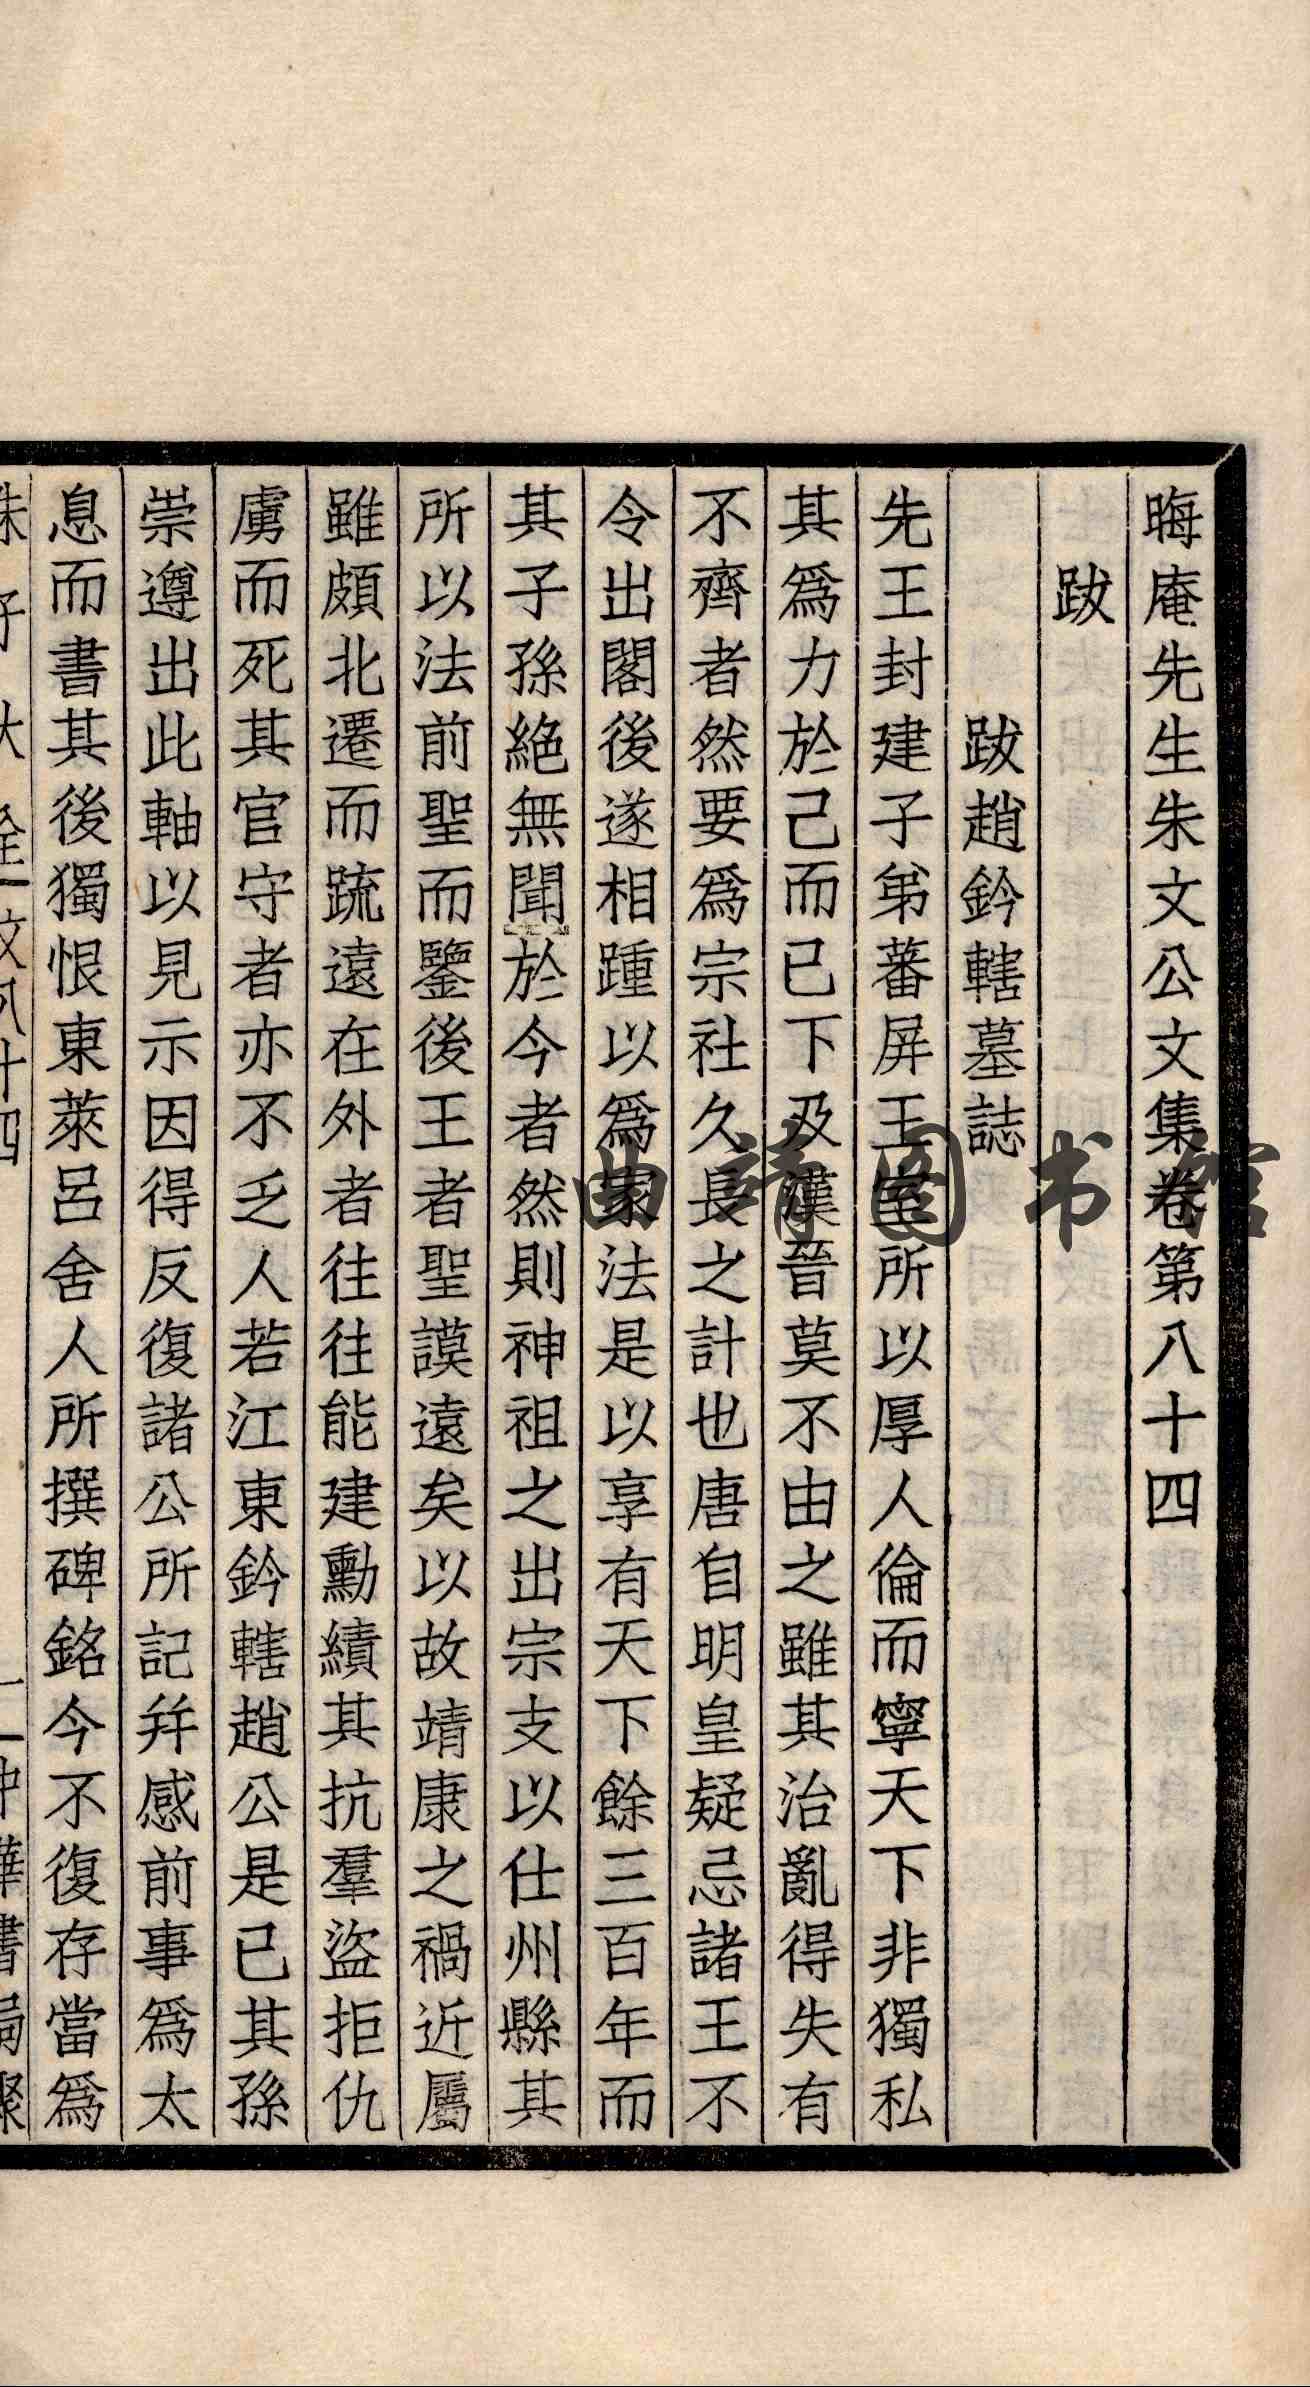 晦庵先生朱文公文集卷第八十四
跋
跋趙鈐轄墓誌
先王封建子弟蕃屏王室所以厚人倫而寧天下非獨私
其爲力於己而已下及漢晉莫不由之雖其治亂得失有
不齊者然要爲宗社久長之計也唐自明皇疑忌諸王不
令出閤後遂相踵以爲家法是以享有天下餘三百年而
其子孫絶無聞於今者然則神祖之出宗支以仕州縣其
所以法前聖而鑒後王者聖謨遠矣以故靖康之禍近屬
雖頗北遷而䟽遠在外者往往能建勳績其抗羣盜拒仇
虜而死其官守者亦不乏人若江東鈐轄趙公是已其孫
崇遵出此軸以見示因得反復諸公所記幷感前事爲太
息而書其後獨恨東萊呂舍人所撰碑銘今不復存當爲
曲靖图书馆